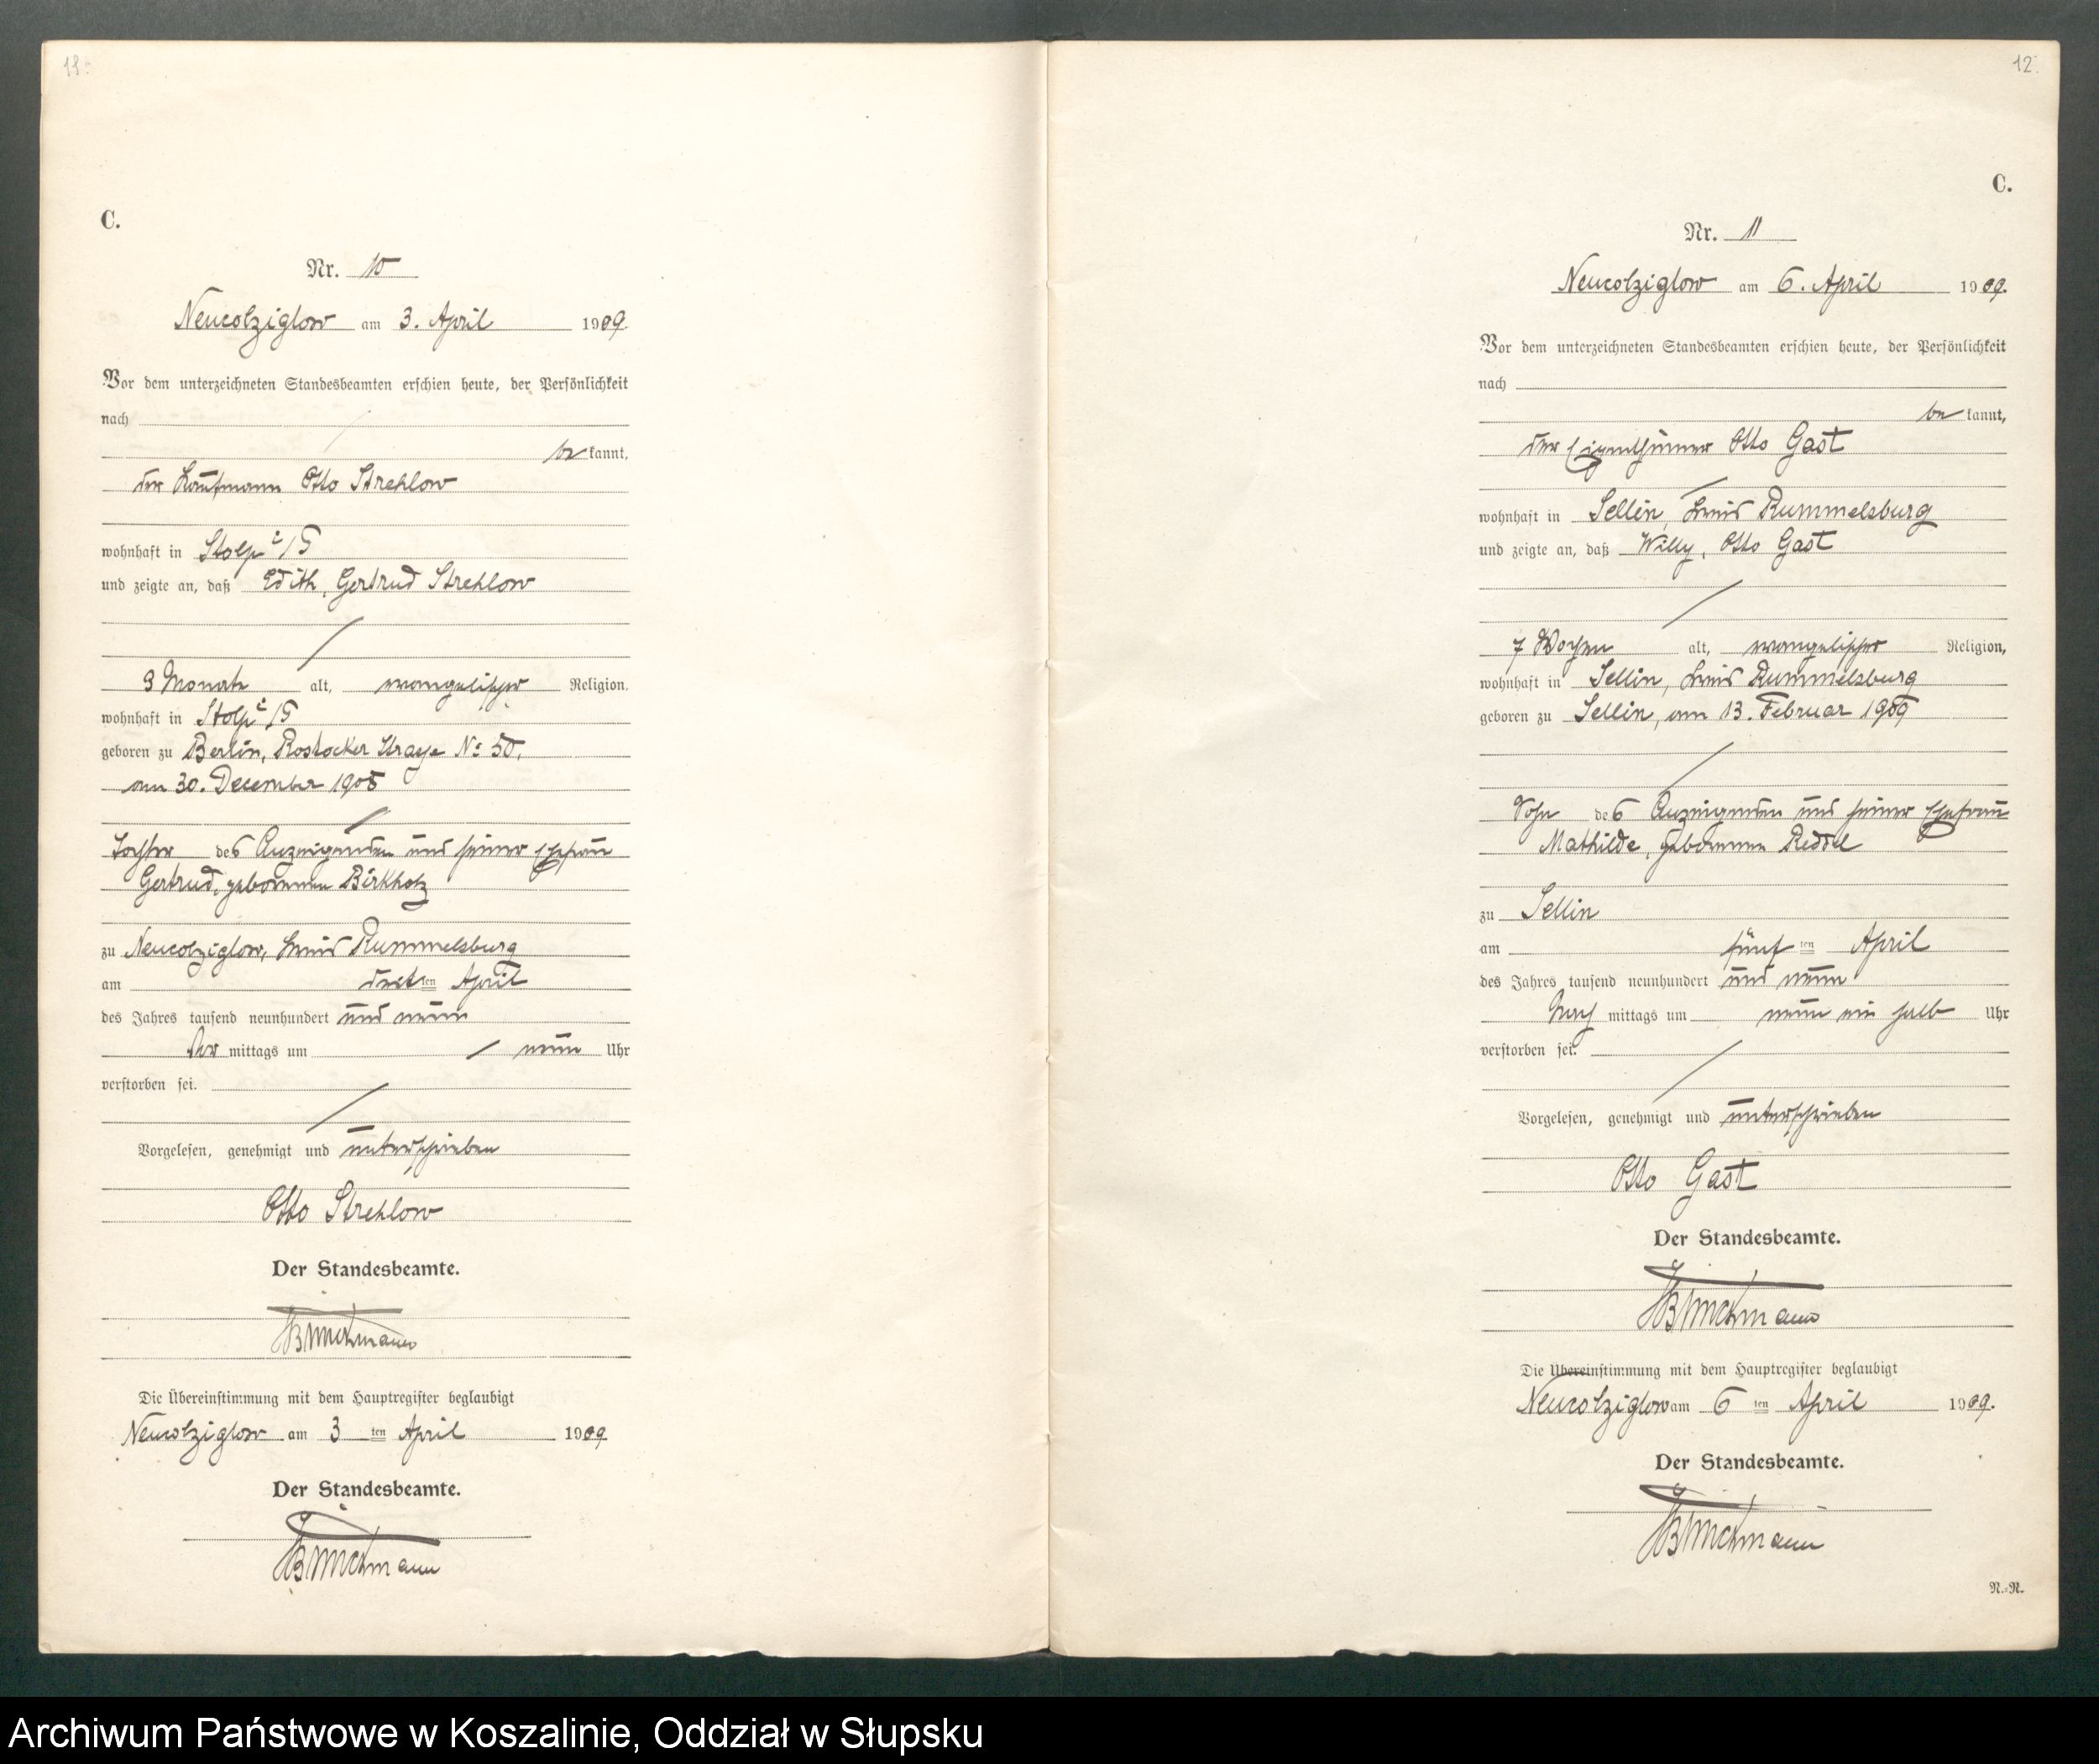 C.
Nr. 10
Neucolziglow am 3. April 1909.
Vor dem unterzeichneten Standesbeamten erschien heute, der Persönlichkeit
nach
be kannt,
der Kaufmann Otto Strehlow
wohnhaft in Stolp i/P
und zeigte an, daß Edith, Gertrud Strehlow
3 Monate alt, evangelischer Religion,
wohnhaft in Stolp i/P
geboren zu Berlin, Rostocker Strasse No 50,
am 30. December 1908
Tochter des Anzeigenden und seiner Ehefrau
Gertrud, geborenen Birkholz
zu Neucolziglow, Kreis Rummelsburg
am dritten April
des Jahres tausend neunhundert und neun
Vor mittags um neun Uhr
verstorben sei.
Vorgelesen, genehmigt und unterschrieben
Otto Strehlow
Der Standesbeamte.
Die Übereinstimmung mit dem Hauptregister beglaubigt
Neucolziglow am 3 ten April 1909
Der Standesbeamte.
12.
C.
Nr. 11
Neucolziglow am 6. April 1909.
Vor dem unterzeichneten Standesbeamten erschien heute, der Persönlichkeit
nach
be kannt,
der Eigenthümer Otto Gast
wohnhaft in Sellin, Kreis Rummelsburg
und zeigte an, daß Willy, Otto Gast
7 Wochen alt, evangelischer Religion,
wohnhaft in Sellin, Kreis Rummelsburg
geboren zu Sellin, am 13. Februar 1909
Sohn des Anzeigenden und seiner Ehefrau
Mathilde, geborenen Reddel
zu Sellin
am fünf ten April
des Jahres tausend neunhundert und neun
Nach mittags um neun ein halb Uhr
verstorben sei.
Vorgelesen, genehmigt und unterschrieben
Otto Gast
Der Standesbeamte.
Die Übereinstimmung mit dem Hauptregister beglaubigt
Neucolziglow am 6 ten April 1909.
Der Standesbeamte.
N.-R.
Archiwum Państwowe w Koszalinie, Oddział w Słupsku